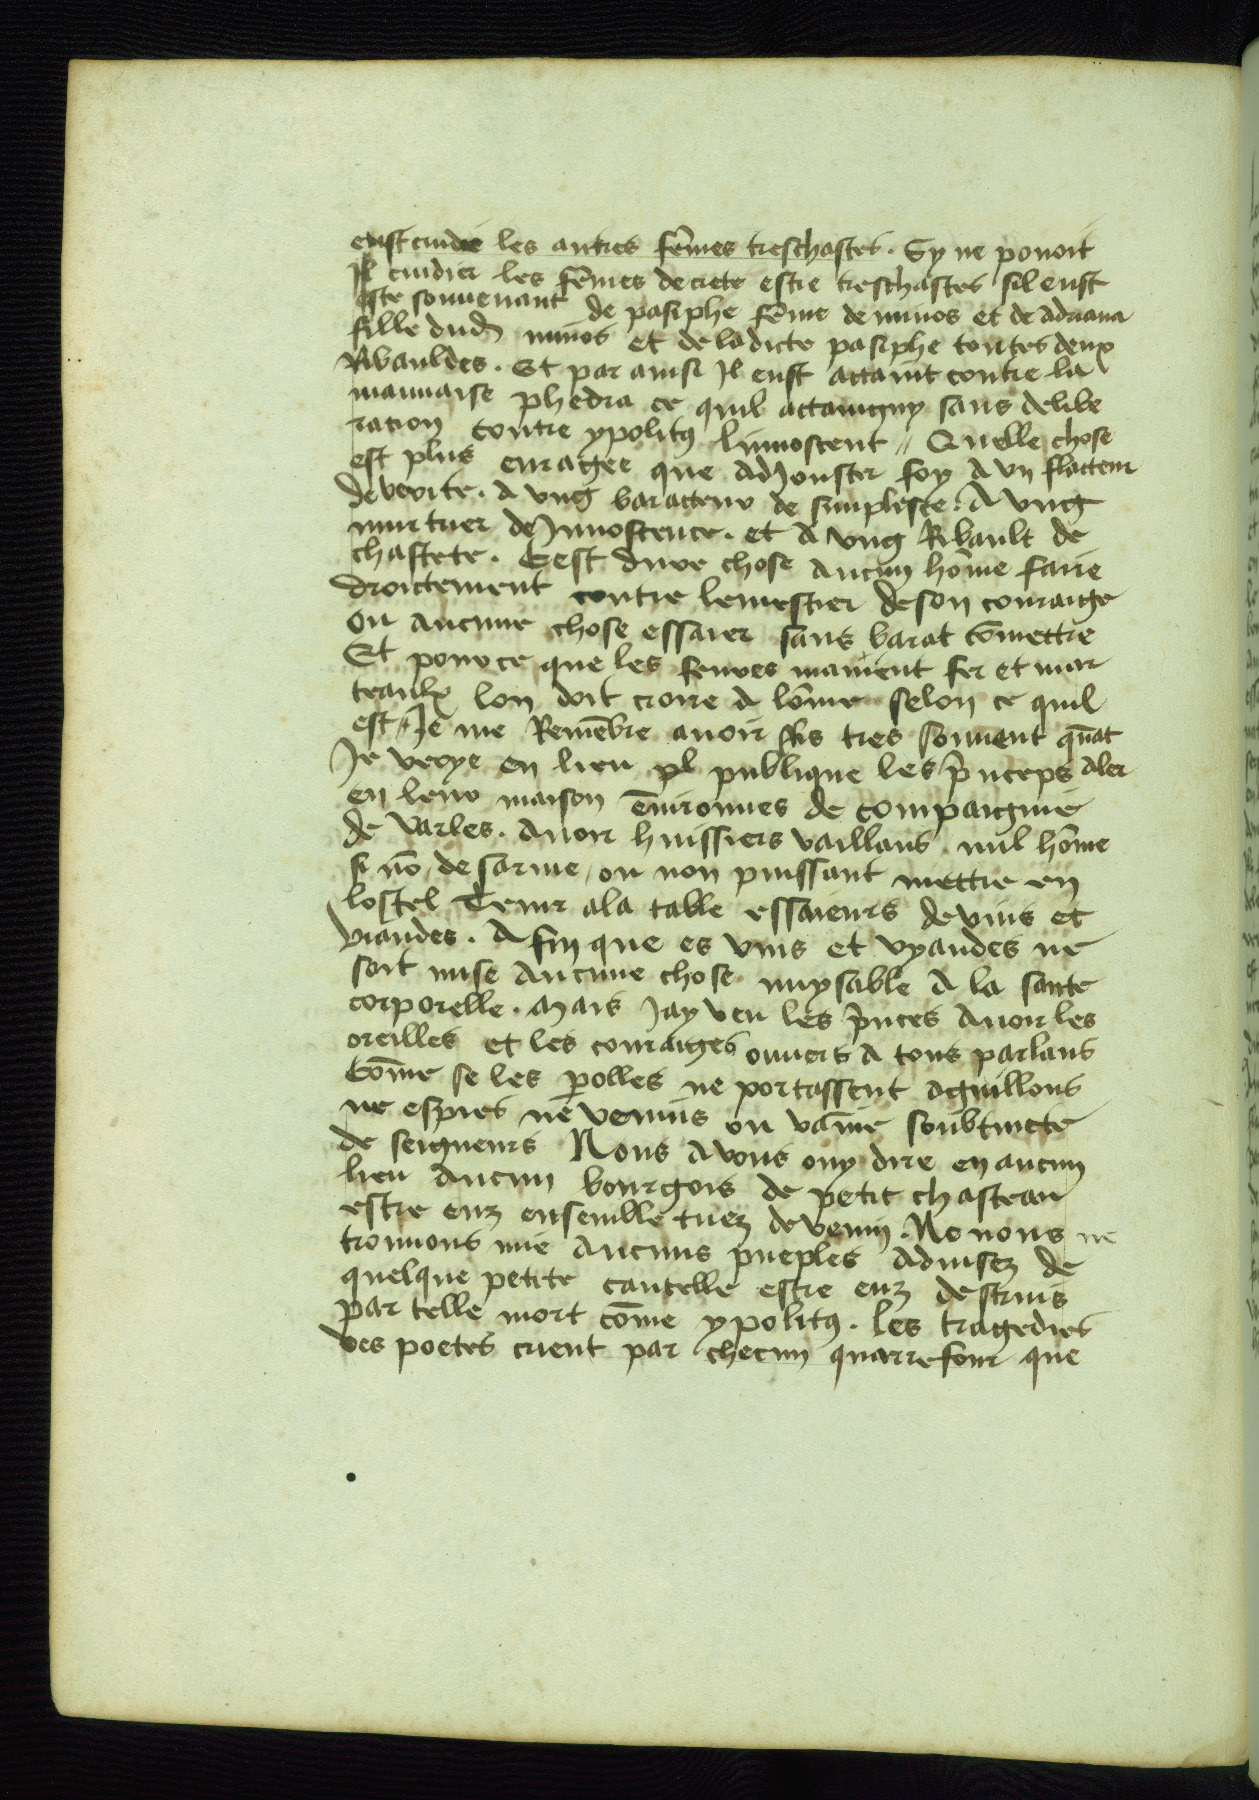 eust cuidie les autres fe͂mes treschastes. Sy ne pouoit
Il cuidier les fe͂mes de crete estre treschastes sil eust
este souuenant de pasiphe fe͂me de minos et de adriana
fille dud minos et de ladicte pasiphe toutes deux
Ribauldes. Et par ainsi Il eust attaint contre la
mauuaise phedra ce quil attaingny sans delibe
racion contre ypolitꝰ linnoscent // Quelle chose
est plus enragee que adJouster foy a vn flateur
de verite. a vng barateur de simplesse. A vng
murtrier de Innoscence. et a vng Ribault de
chastete. Cest dure chose aucun ho͂me faire
droictement contre lemestier deson couraige
ou aucune chose essaier sans barat co͂mettre
Et pource que les feures manient fer et mar
teaulx lon doit croire a lo͂me selon ce quil
est // Je me Reme͂bre auoir ris tres souuent qua͂t
Je veoye en lieu publique les p̃nceps aler
en leur maison e͂uironnes de compaignie
de varles. auoir huissiers vaillans nul ho͂me
si no͂ desarme, ou non puissant mettre en
lostel Tenir ala table essaieurs de vins et
viandes. Afin que es vins et vyandes ne
soit mise aucune chose nuysable a la sante
corporelle. Mais Jay veu les p̃nces auoir les
oreilles et les couraiges ouuers a tous parlans
Co͂me se les p̲olles ne portassent aguillons
ne espies ne venins ou va͂me soubtincte
de seigneurs Nous auons ouy dire en aucun
lieu aucun bourgois de petit chasteau
estre eux ensemble tuez de venin. Ne nous ne
trouuons mie aucuns pueples aduisez de
quelque petite cautelle estre eux destruis
par telle mort co͂me ypolitꝰ. les tragedies
des poetes crient par checun quarrefour que